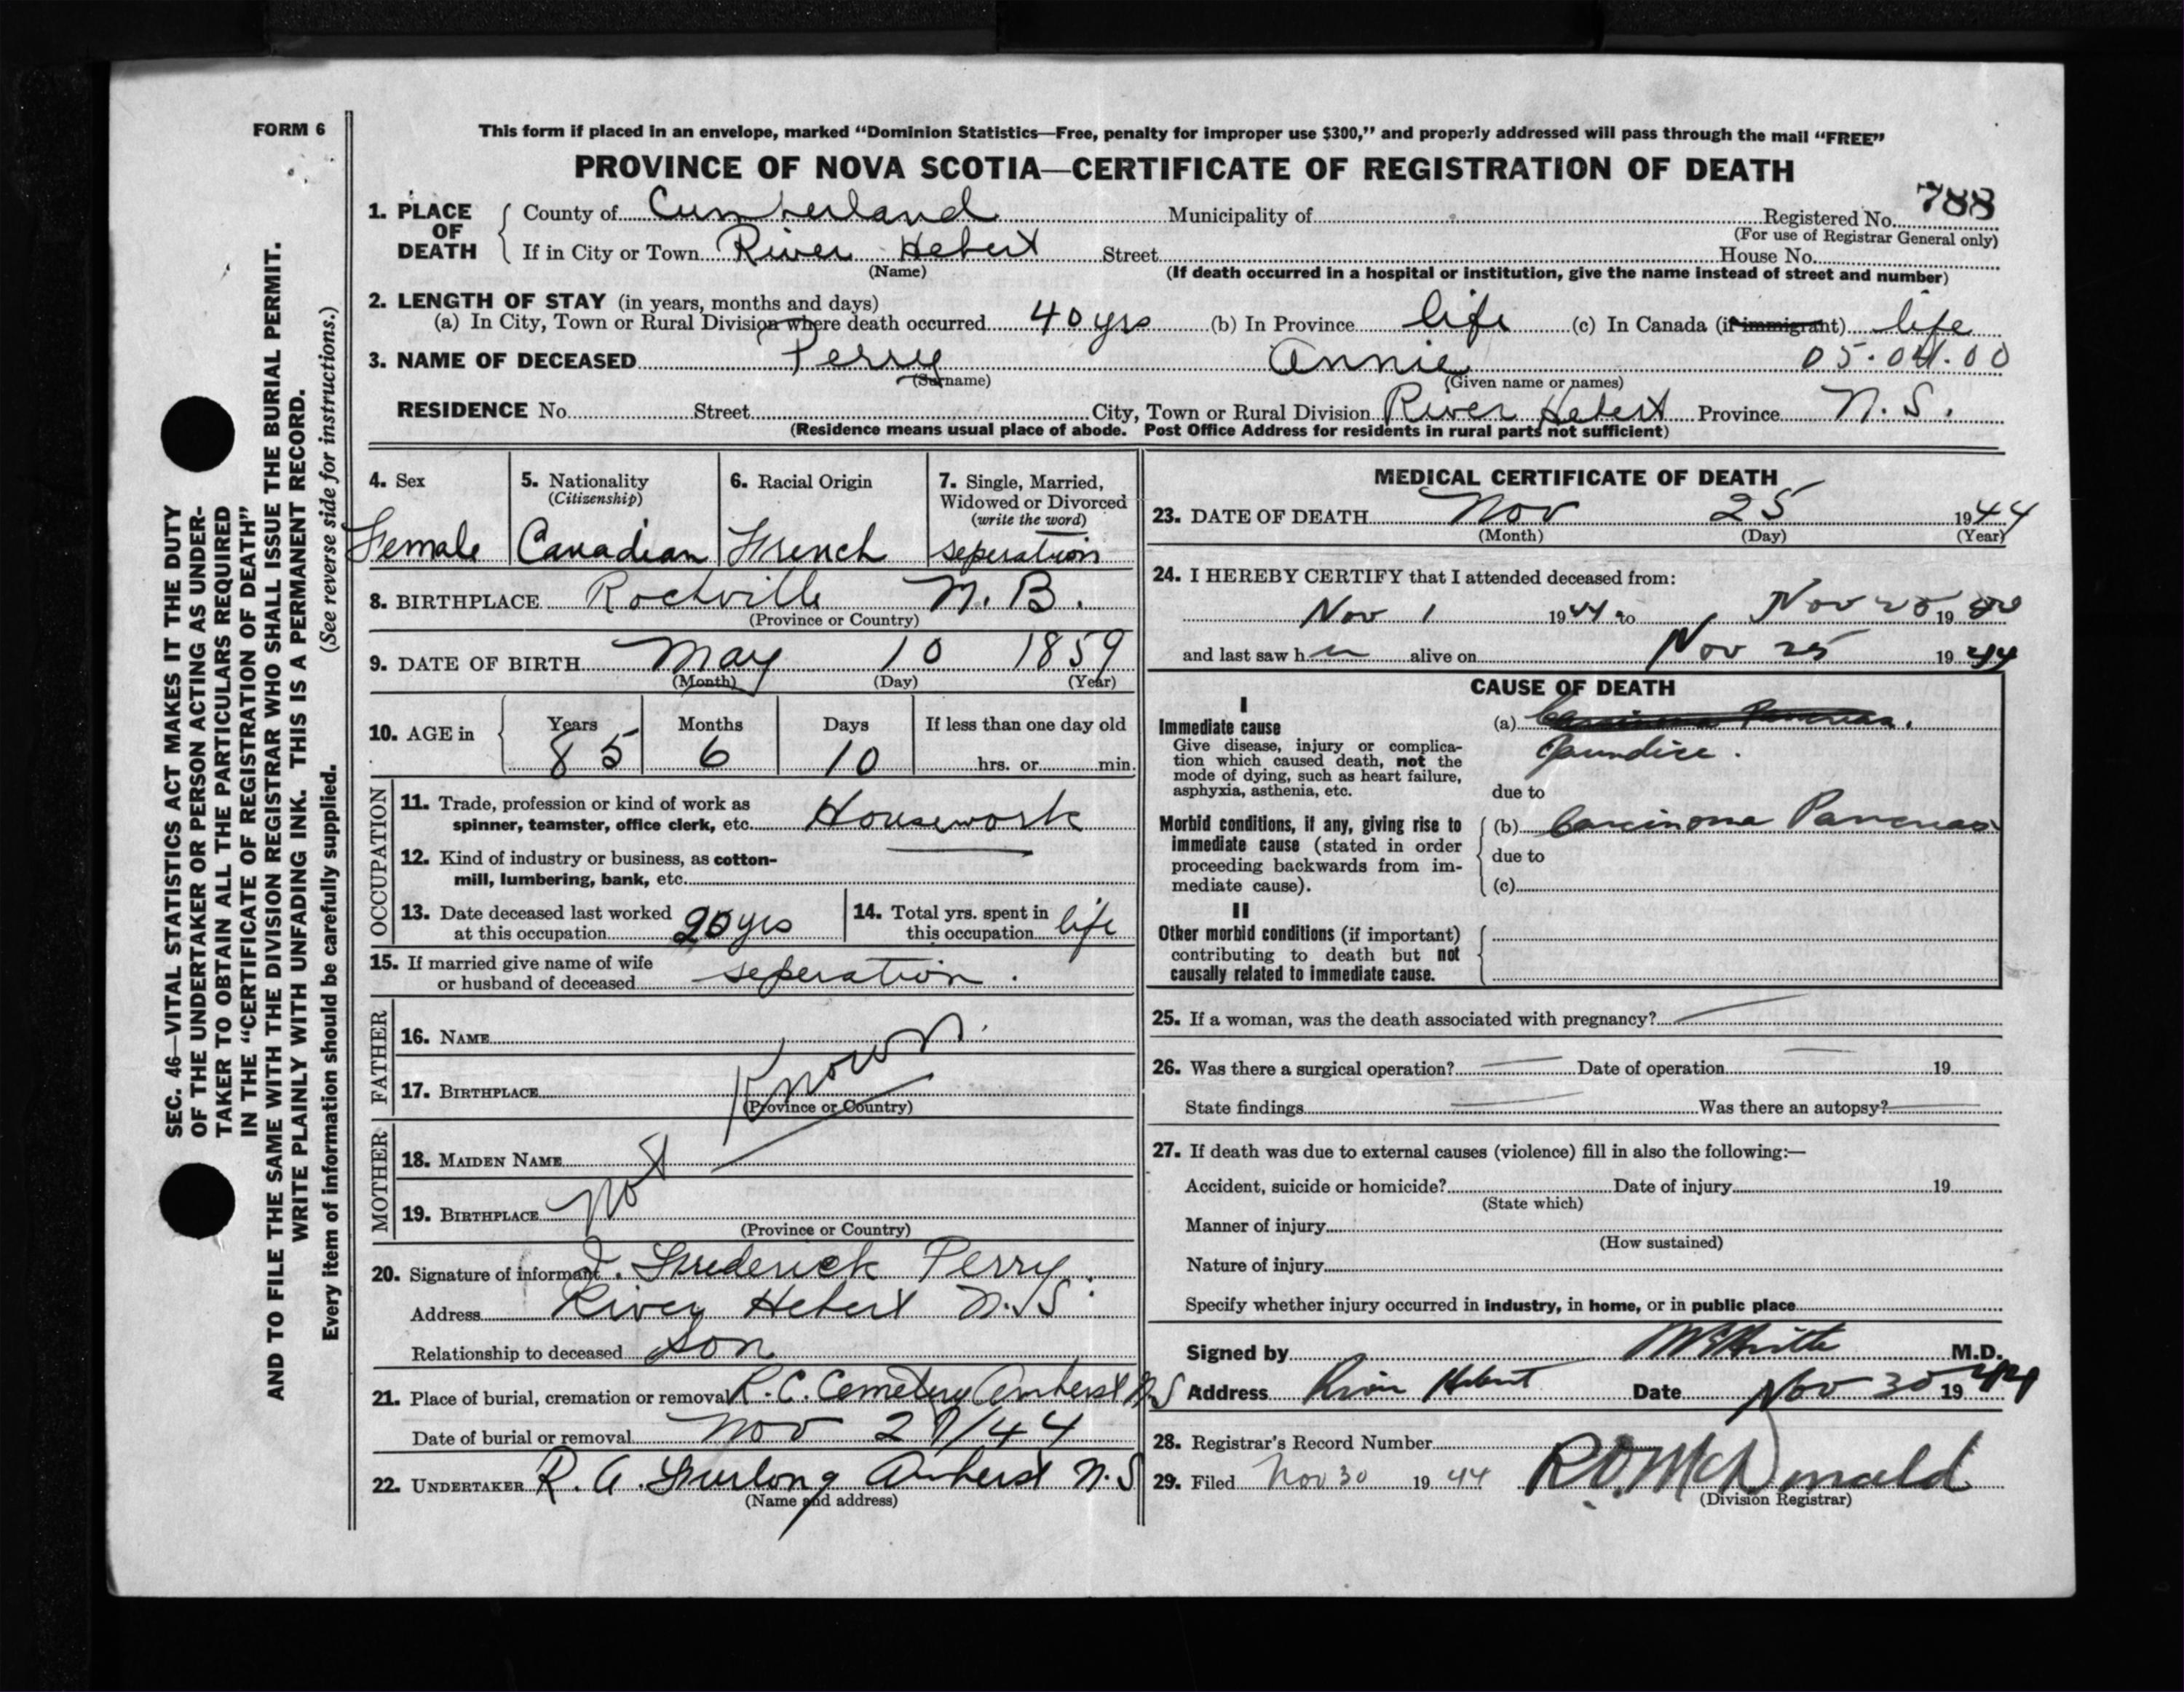 FORM 6
This form if placed in an envelope, marked "Dominion Statistics—Free, penalty for improper use $300," and properly addressed will pass through the mail "FREE"
PROVINCE OF NOVA SCOTIA—CERTIFICATE OF REGISTRATION OF DEATH
SEC. 46—VITAL STATISTICS ACT MAKES IT THE DUTY
OF THE UNDERTAKER OR PERSON ACTING AS UNDER-
TAKER TO OBTAIN ALL THE PARTICULARS REQUIRED
IN THE "CERTIFICATE OF REGISTRATION OF DEATH"
AND TO FILE THE SAME WITH THE DIVISION REGISTRAR WHO SHALL ISSUE THE BURIAL PERMIT.
WRITE PLAINLY WITH UNFADING INK. THIS IS A PERMANENT RECORD.
Every item of information should be carefully supplied. (See reverse side for instructions.)
1. PLACE OF DEATH
County of Cumberland Municipality of Registered No. 788
(For use of Registrar General only)
If in City or Town River Hebert Street House No.
(Name) (If death occurred in a hospital or institution, give the name instead of street and number)
2. LENGTH OF STAY (in years, months and days)
(a) In City, Town or Rural Division where death occurred 40 yrs (b) In Province life (c) In Canada (if immigrant) life
3. NAME OF DECEASED Perry Annie 05.04.00
(Surname) (Given name or names)
RESIDENCE No. Street City, Town or Rural Division River Hebert Province N.S.
(Residence means usual place of abode. Post Office Address for residents in rural parts not sufficient)
4. Sex
Female
5. Nationality
(Citizenship)
Canadian
6. Racial Origin
French
7. Single, Married,
Widowed or Divorced
(write the word)
seperation
8. BIRTHPLACE Rockville N.B.
(Province or Country)
9. DATE OF BIRTH May 10 1859
(Month) (Day) (Year)
10. AGE in
Years Months Days If less than one day old
85 6 10 hrs. or min.
OCCUPATION
11. Trade, profession or kind of work as
spinner, teamster, office clerk, etc. Housework
12. Kind of industry or business, as cotton-
mill, lumbering, bank, etc.
13. Date deceased last worked
at this occupation 20 yrs
14. Total yrs. spent in
this occupation life
15. If married give name of wife
or husband of deceased seperation.
FATHER
16. NAME
17. BIRTHPLACE
(Province or Country)
MOTHER
18. MAIDEN NAME
19. BIRTHPLACE
(Province or Country)
Not Known
20. Signature of informant J. Frederick Perry
Address River Hebert N.S.
Relationship to deceased Son
21. Place of burial, cremation or removal R.C. Cemetery Amherst N.S
Date of burial or removal Nov 27/44
22. UNDERTAKER R. A. Furlong Amherst N.S
(Name and address)
MEDICAL CERTIFICATE OF DEATH
23. DATE OF DEATH Nov 25 1944
(Month) (Day) (Year)
24. I HEREBY CERTIFY that I attended deceased from:
Nov 1 1944 to Nov 25 1944
and last saw her alive on Nov 25 1944
CAUSE OF DEATH
I
Immediate cause
Give disease, injury or complica-
tion which caused death, not the
mode of dying, such as heart failure,
asphyxia, asthenia, etc.
(a) Carcinoma Pancreas.
Jaundice.
due to
Morbid conditions, if any, giving rise to
immediate cause (stated in order
proceeding backwards from im-
mediate cause).
(b) Carcinoma Pancreas
due to
(c)
II
Other morbid conditions (if important)
contributing to death but not
causally related to immediate cause.
25. If a woman, was the death associated with pregnancy?
26. Was there a surgical operation? Date of operation 19
State findings Was there an autopsy?
27. If death was due to external causes (violence) fill in also the following:—
Accident, suicide or homicide? Date of injury 19
(State which)
Manner of injury
(How sustained)
Nature of injury
Specify whether injury occurred in industry, in home, or in public place
Signed by M.D.
Address River Hebert Date Nov 30 1944
28. Registrar's Record Number
29. Filed Nov 30 1944 R O McDonald
(Division Registrar)